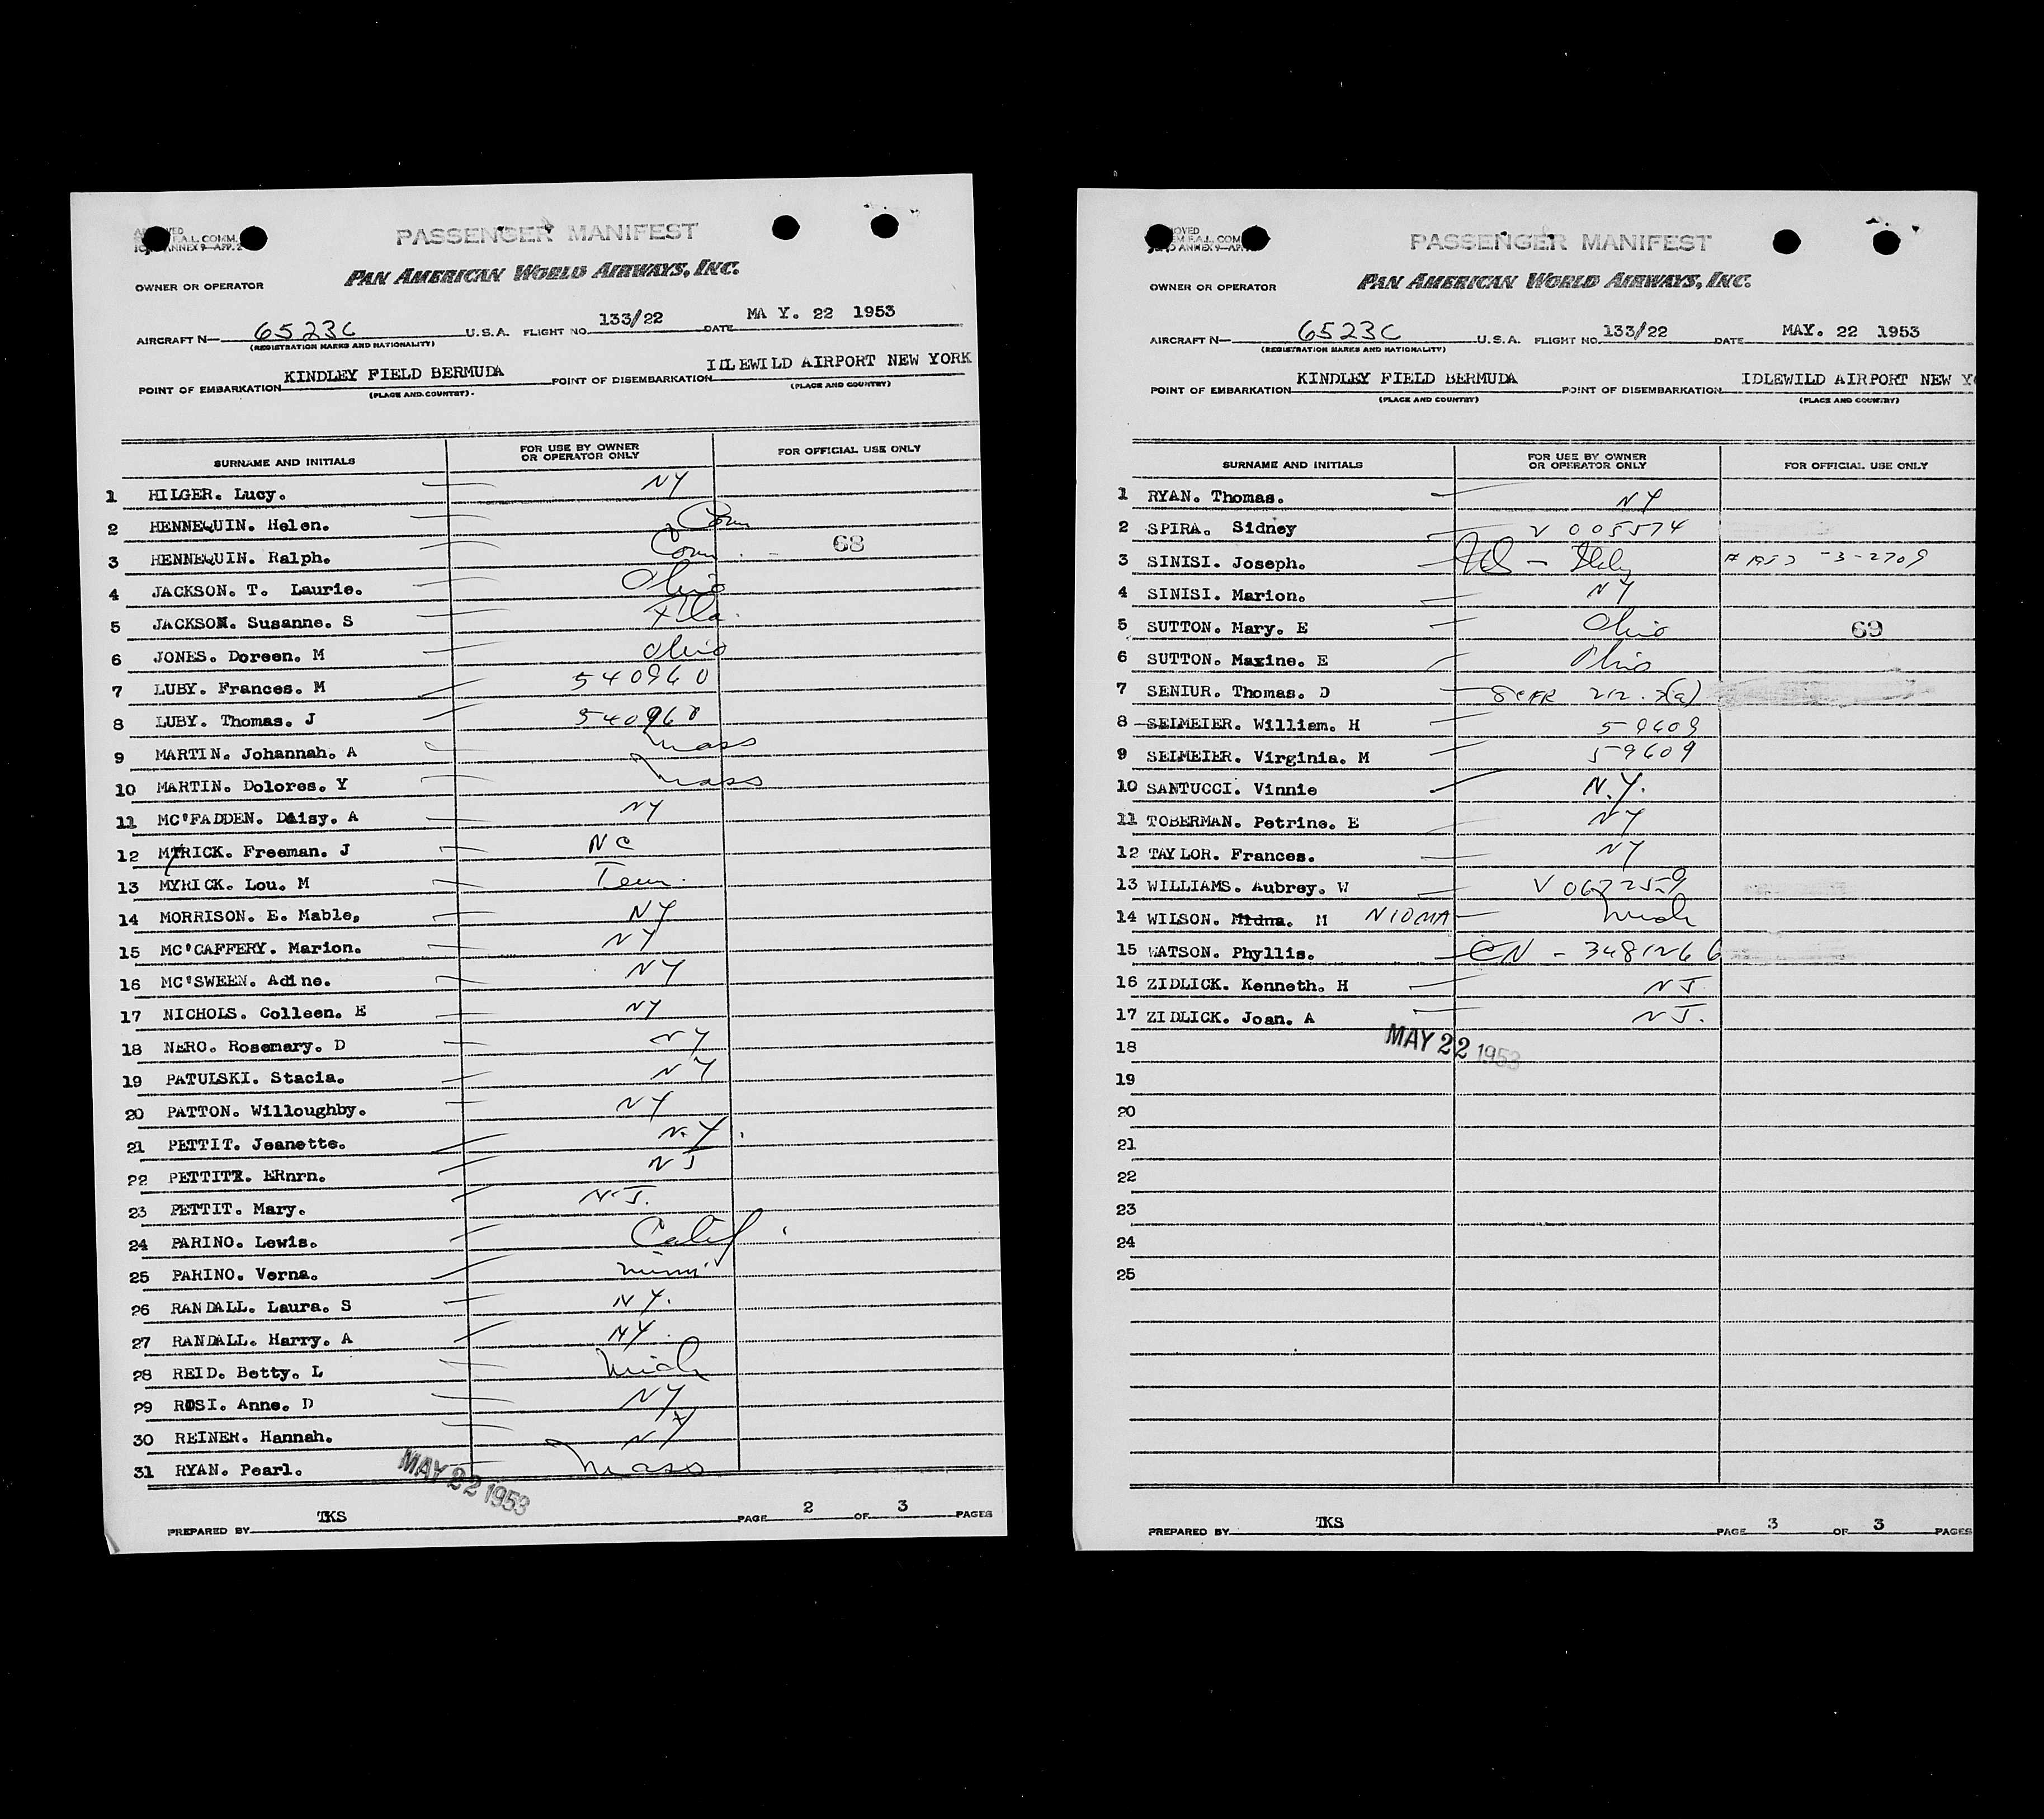 PASSENGER MANIFEST
F.A.L. COMM.
ANNEX 9—APP. 2
PAN AMERICAN WORLD AIRWAYS, INC.
OWNER OR OPERATOR
AIRCRAFT N— 6523C U.S.A. FLIGHT NO. 133/22 DATE MA Y. 22 1953
(REGISTRATION MARKS AND NATIONALITY)
POINT OF EMBARKATION KINDLEY FIELD BERMUDA POINT OF DISEMBARKATION IDLEWILD AIRPORT NEW YORK
(PLACE AND COUNTRY) (PLACE AND COUNTRY)
SURNAME AND INITIALS FOR USE BY OWNER OR OPERATOR ONLY FOR OFFICIAL USE ONLY
1 HILGER. Lucy. NY
2 HENNEQUIN. Helen. Conn
3 HENNEQUIN. Ralph. Conn. 68
4 JACKSON. T. Laurie. Ohio
5 JACKSON. Susanne. S Fla.
6 JONES. Doreen. M Ohio
7 LUBY. Frances. M 540960
8 LUBY. Thomas. J 540960
9 MARTIN. Johannah. A Mass
10 MARTIN. Dolores. Y Mass
11 MC'FADDEN. Daisy. A NY
12 MYRICK. Freeman. J NC
13 MYRICK. Lou. M Tenn.
14 MORRISON. E. Mable, NY
15 MC'CAFFERY. Marion. NY
16 MC'SWEEN. Adine. NY
17 NICHOLS. Colleen. E NY
18 NERO. Rosemary. D NY
19 PATULSKI. Stacia. NY
20 PATTON. Willoughby. NY
21 PETTIT. Jeanette. N.Y.
22 PETTIT. ERnrn. NJ
23 PETTIT. Mary. N.J.
24 PARINO. Lewis. Calif
25 PARINO. Verna. Minn
26 RANDALL. Laura. S NY.
27 RANDALL. Harry. A NY.
28 REID. Betty. L Mich
29 ROSI. Anne. D NY
30 REINER. Hannah. NY
31 RYAN. Pearl. Mass
MAY 22 1953
PREPARED BY TKS PAGE 2 OF 3 PAGES
PASSENGER MANIFEST
PAN AMERICAN WORLD AIRWAYS, INC.
OWNER OR OPERATOR
AIRCRAFT N— 6523C U.S.A. FLIGHT NO. 133/22 DATE MAY. 22 1953
(REGISTRATION MARKS AND NATIONALITY)
POINT OF EMBARKATION KINDLEY FIELD BERMUDA POINT OF DISEMBARKATION IDLEWILD AIRPORT NEW YO
(PLACE AND COUNTRY) (PLACE AND COUNTRY)
SURNAME AND INITIALS FOR USE BY OWNER OR OPERATOR ONLY FOR OFFICIAL USE ONLY
1 RYAN. Thomas. NY
2 SPIRA. Sidney V 005574
3 SINISI. Joseph.
4 SINISI. Marion. NY
5 SUTTON. Mary. E Ohio 69
6 SUTTON. Maxine. E Ohio
7 SENIUR. Thomas. D 8 CFR 212.
8 SELMEIER. William. H 59609
9 SELMEIER. Virginia. M 59609
10 SANTUCCI. Vinnie N.Y.
11 TOBERMAN. Petrine. E NY
12 TAYLOR. Frances. NY
13 WILLIAMS. Aubrey. W V 067259
14 WILSON. Midna. M NIOMA Mich
15 WATSON. Phyllis. CN - 3481266
16 ZIDLICK. Kenneth. H NJ
17 ZIDLICK. Joan. A NJ.
MAY 22 1953
18
19
20
21
22
23
24
25
PREPARED BY TKS PAGE 3 OF 3 PAGES